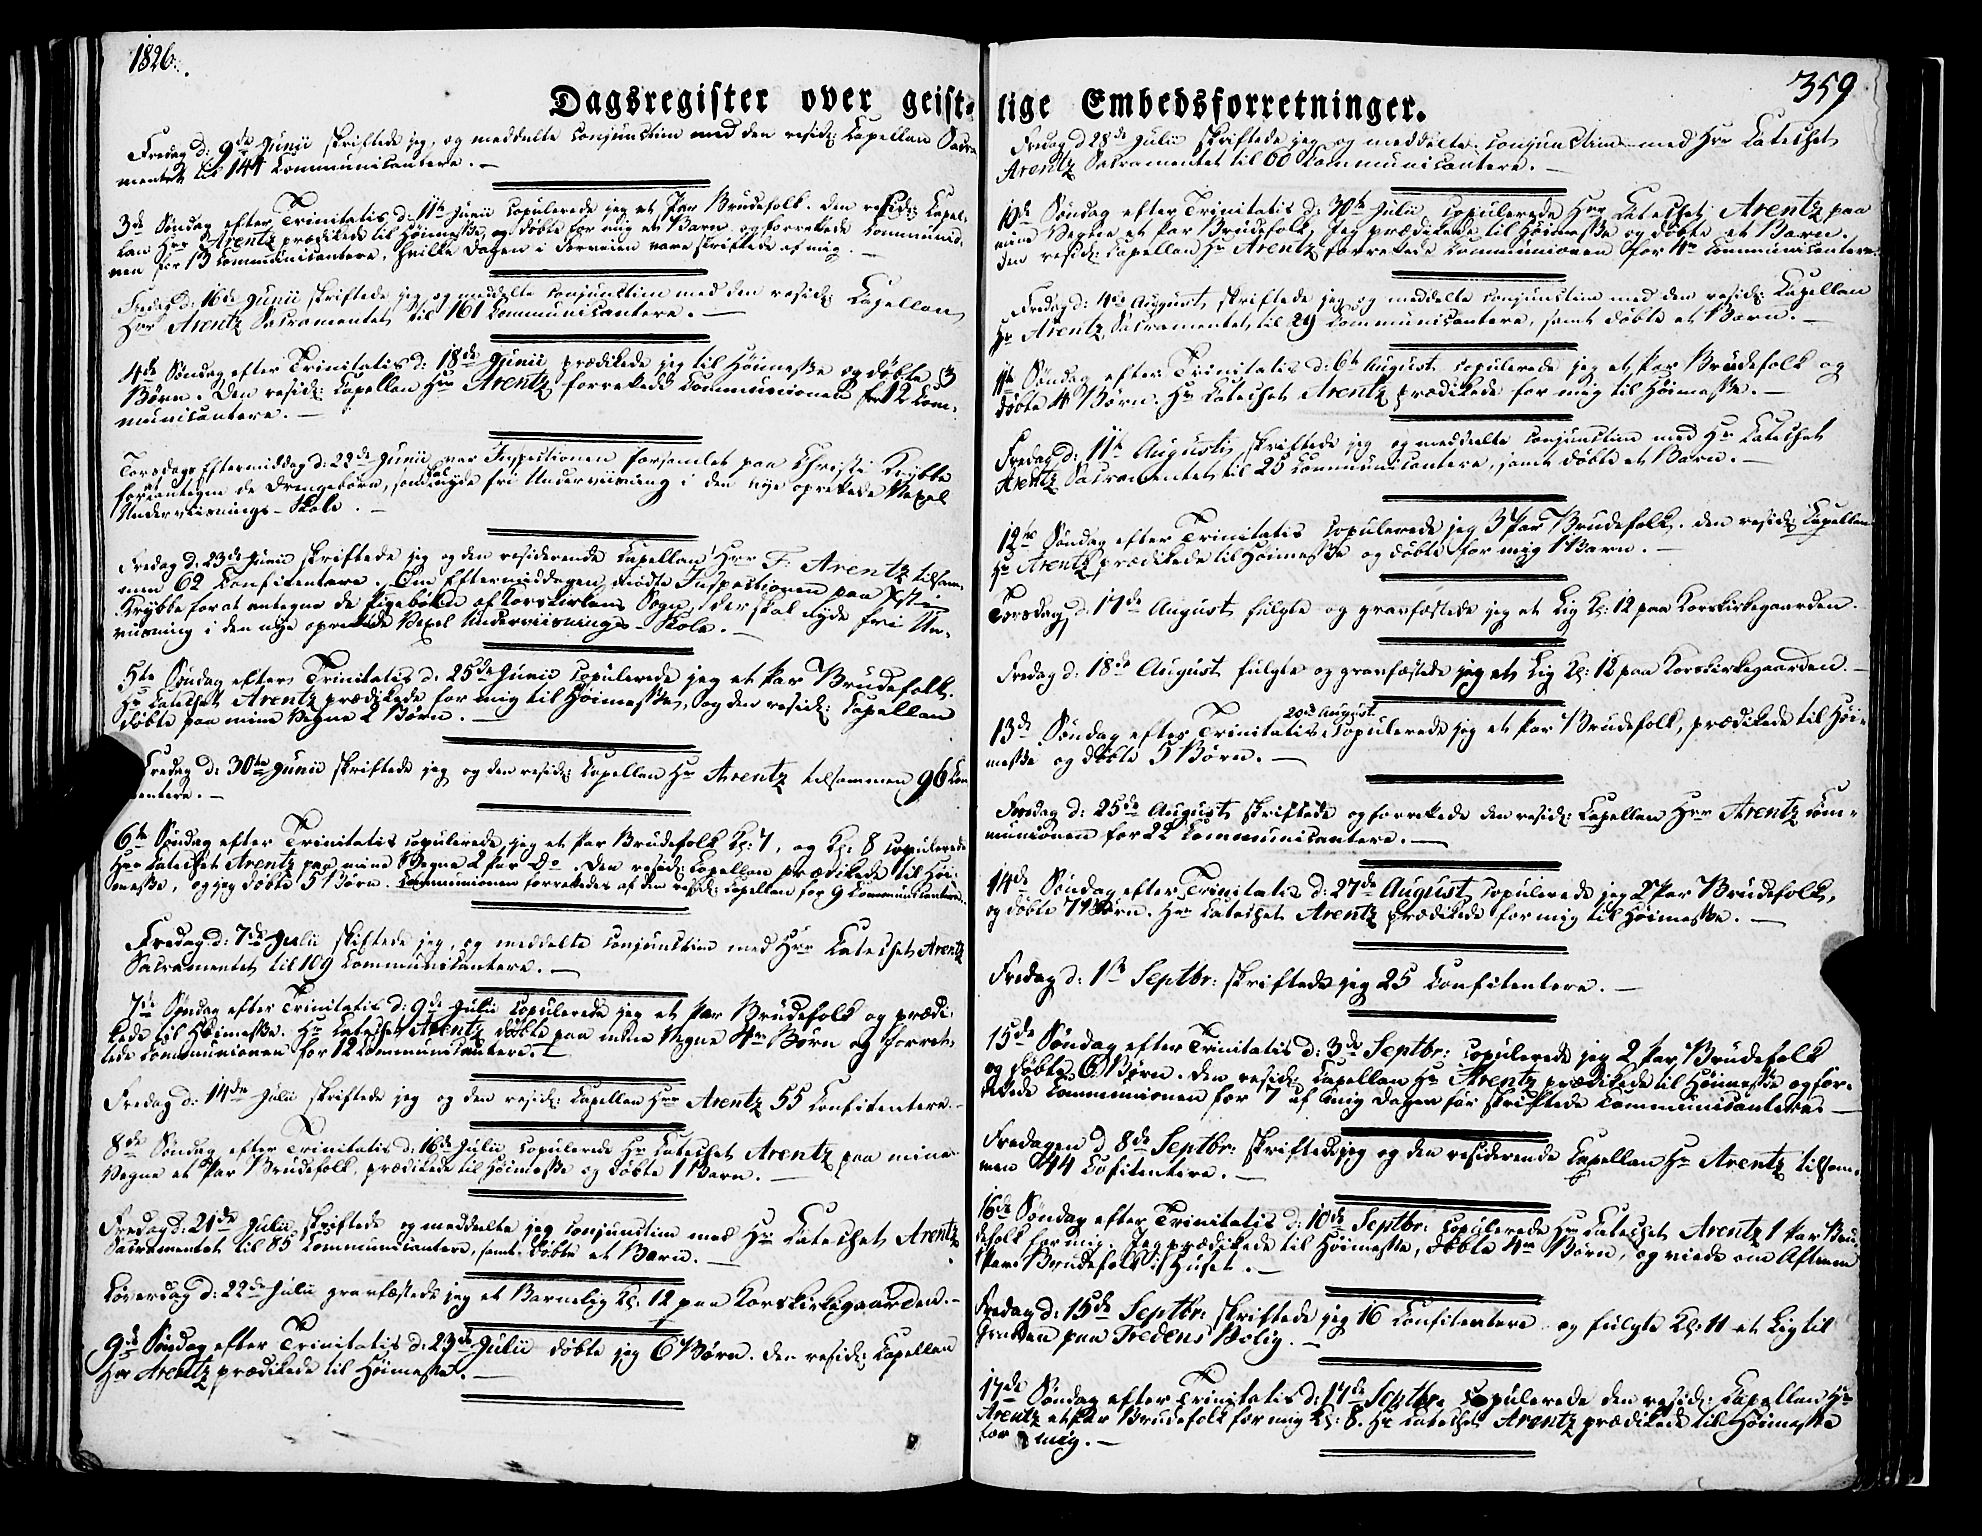 1826.
359
Dagsregister over geist- lige Embedsforretninger.
Fredag d: 9de Junii skriftede jeg, og meddeelte conjunctim med den resid: Capellan Sacra-
mentet til 144 Communicantere. —
3de Søndag efter Trinitatis d: 11te Junii copulerede jeg et Par Brudefolk. Den resid: Capel-
lan Hrr Arentz prædikede til Høimesse, og døbte for mig et Barn og forrettede Communio-
nen for 13 Communicantere, hvilke Dagen i Forveien vare skriftede af mig. —
Fredag d: 16de Junii skriftede jeg og meddelte conjunctim med den resid: Capellan
Hrr Arentz Sacramentet til 161 Communicantere. —
4de Søndag efter Trinitatis d: 18de Junii prædikede jeg til Høimesse og døbte 3
Børn. Den resid: Capellan Hrr Arentz forrettede Communionen for 12 Com-
municantere. —
Torsdags Eftermiddag d: 22de Junii var Inspectionen forsamlet paa Christi Krybbe
for at antegne de Drengebørn, som skal nyde fri Underviisning i den nye oprettede Vexel
Underviisnings-Skole. —
Fredag d: 23de Junii skriftede jeg og den residerende Capellan Hrr F: Arentz tilsam-
men 62 Confitentere. Om Eftermiddagen mødte Inspectionen paa Xsti
Krybbe for at antegne de Pigebørn af Korskirkens Sogn, der skal nyde fri Un-
viisning i den nye oprettede Vexel Underviisnings-Skole. —
5te Søndag efter Trinitatis d: 25de Junii copulerede jeg et Par Brudefolk.
Hr Catechet Arentz prædikede for mig til Høimesse, og den resid: Capellan
døbte paa mine Vegne 2 Børn. —
Fredag d: 30te Junii skriftede jeg og den resid: Capellan Hr Arentz tilsammen 96 Con-
tentere. —
6te Søndag efter Trinitatis copulerede jeg et Par Brudefolk Kl: 7, og Kl: 8 copulerede
Hrr Catechet Arentz paa mine Vegne 2 Par Do. Den resid: Capellan prædikede til Høi-
messe, og jeg døbte 5 Børn. Communionen forrettedes af den resid: Capellan for 9 Communicantere.
Fredag d: 7de Julii skiftede jeg, og meddelte conjunctim med Hrr Catechet Arentz
Sacramentet til 109 Communicantere. —
7de Søndag efter Trinitatis d: 9de Julii copulerede jeg et Par Brudefolk og prædi-
kede til Høimesse. Hr Catechet Arentz døbte paa mine Vegne 4re Børn og forret-
tede Communionen for 12 Communicantere. —
Fredag d: 14de Julii skriftede jeg og den resid: Capellan Hrr Arentz 55 Confitentere. —
8de Søndag efter Trinitatis d: 16de Julii copulerede Hr Catechet Arentz paa mine
Vegne et Par Brudefolk, prædikede til Høimesse og døbte 1 Barn. —
Fredag d: 21de Julii skriftede og meddeelte jeg conjunctim med Hr Catechet Arentz
Sacramentet til 85 Communicantere, samt døbte et Barn. —
Løverdag d: 22de Julii gravfæstede jeg et Barnelig Kl: 12 paa Korskirkegaarden. —
9de Søndag efter Trinitatis d: 23de Julii døbte jeg 6 Børn. Den resid: Capellan
Hrr Arentz prædikede til Høimesse. —
Fredag d 28de Julii skriftede jeg og meddelte conjunctim med Hrr Catechet
Arentz Sacramentet til 60 Communicantere. —
10de Søndag efter Trinitatis d: 30te Julii copulerede Hrr Catechet Arentz paa
mine Vegne et Par Brudefolk, Jeg prædikede til Høimesse og døbte et Barn.
Den resid: Capellan Hr Arentz forrettede Communionen for 4re Communicantere.
Fredag d: 4de August, skriftede jeg og meddelte conjunctim med den resid: Capellan
Hr Arentz Sacramentet til 29 Communicantere, samt døbte et Barn. —
11te Søndag efter Trinitatis d: 6te August copulerede jeg et Par Brudefolk og
døbte 4 Børn. Hr Catechet Arentz prædikede for mig til Høimesse. —
Fredag d: 11te Augusti skriftede jeg og meddeelte conjunctim med Hr Catechet
Arentz Sacramentet til 25 Communicantere, samt døbte et Barn. —
12te Søndag efter Trinitatis copulerede jeg 3 Par Brudefolk. Den resid: Capellan
Hr Arentz prædikede til Høimesse og døbte for mig 1 Barn. —
Torsdag d: 17de August fulgte og gravfæstede jeg et Lig Kl: 12 paa Korskirkegaarden.
Fredag d: 18de August fulgte og gravfæstede jeg et Lig Kl: 12 paa Korskirkegaarden. —
20de August
13de Søndag efter Trinitatis copulerede jeg et Par Brudefolk, prædikede til Høi-
messe og døbte 5 Børn. —
Fredag d: 25de August skriftede og forrettede den resid: Capellan Hrr Arentz Com-
munionen for 22 Communicantere. —
14de Søndag efter Trinitatis d: 27de August, copulerede jeg 2 Par Brudefolk,
og døbte 7 Børn. Hrr Catechet Arentz prædikede for mig til Høimesse. —
Fredag d: 1ste Septbr: skriftede jeg 25 Confitentere. —
15de Søndag efter Trinitatis d: 3de Septbr: copulerede jeg 2 Par Brudefolk
og døbte 6 Børn. Den resid: Capellan Hr Arentz prædikede til Høimesse og for-
rettede Communionen for 7 af mig Dagen før skriftede Communicantere. —
Fredagen d 8de Septbr: skriftede jeg og den residerende Capellan Hr Arentz tilsam-
men 44 Cofitentere. —
16de Søndag efter Trinitatis d: 10de Septbr: copulerede Hr Catechet Arentz 1 Par Bru-
defolk for mig. Jeg prædikede til Høimesse, døbte 4re Børn, og viede om Aftenen
1 Par Brudefolk i Huset. —
Fredag d: 15de Septbr: skriftede jeg 16 Confitentere og fulgte Kl: 11 et Lig til
Graven paa Fredens Bolig. —
17de Søndag efter Trinitatis d: 17de Septbr. copulerede den resid: Capellan Hr
Arentz et Par Brudefolk for mig Kl: 8. Hr Catechet Arentz prædikede til Høimesse
for mig. —